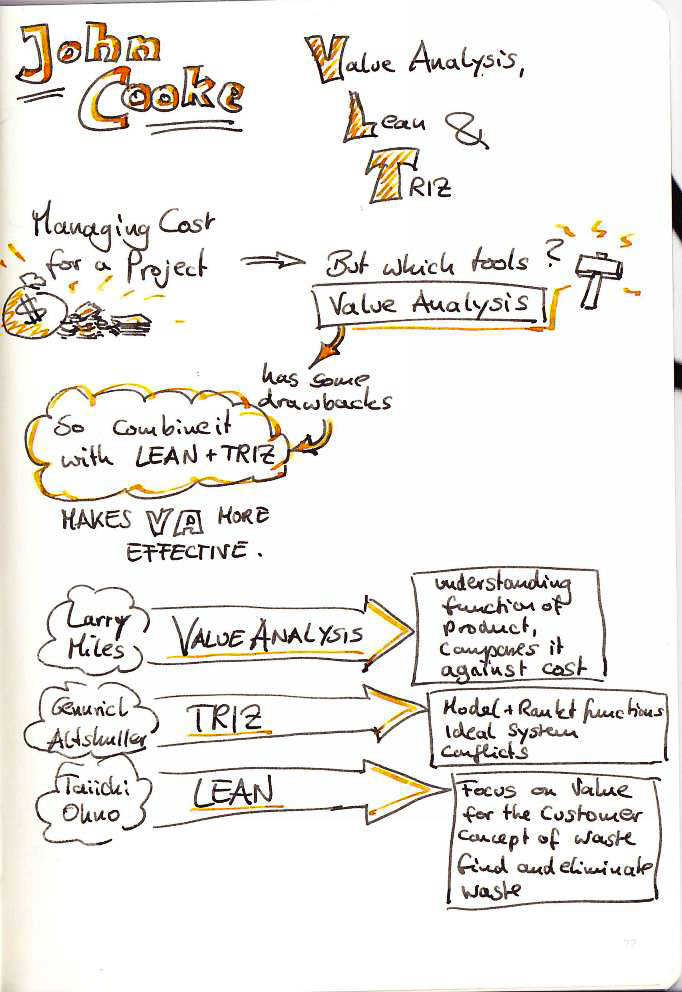 John
Cooke
Value Analysis,
Lean &
TRIZ
Managing Cost
for a Project
But which tools ?
Value Analysis
$
has some
drawbacks
So combine it
with LEAN + TRIZ
MAKES VA MORE
EFFECTIVE.
Larry
Miles
VALUE ANALYSIS
understanding
function of
product,
compares it
against cost
Gennrich
Altshuller
TRIZ
Model + Rankt functions
Ideal System
Conflicts
Taiichi
Ohno
LEAN
Focus on Value
for the Customer
concept of waste
find and eliminate
waste
77